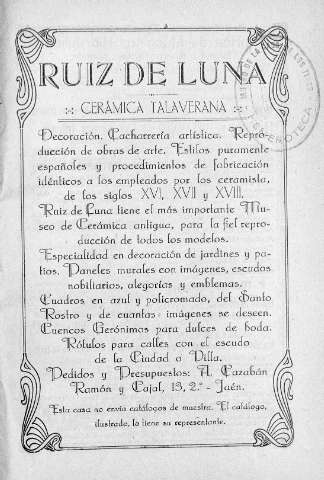 RUIZ DE LUNA
CERÁMICA TALAVERANA
Decoración. Cacharrería artística. Repro-
ducción de obras de arte. Estilos puramente
españoles y procedimientos de fabricación
idénticos a los empleados por los ceramista,
de los siglos XVI, XVII y XVIII.
Ruiz de Luna tiene el más importante Mu-
seo de Cerámica antigua, para la fiel repro-
ducción de todos los modelos.
Especialidad en decoración de jardines y pa-
tios. Paneles murales con imágenes, escudos
nobiliarios, alegorías y emblemas.
Cuadros en azul y policromado, del Santo
Rostro y de cuantas imágenes se deseen.
Cuencos Gerónimos para dulces de boda.
Rótulos para calles con el escudo
de la Ciudad o Villa.
Pedidos y Presupuestos: A. Cazabán
Ramón y Cajal, 13, 2.º - Jaén.
Esta casa no envía catálogos de muestra. El catálogo,
ilustrado, lo tiene su representante.
HEMEROTECA